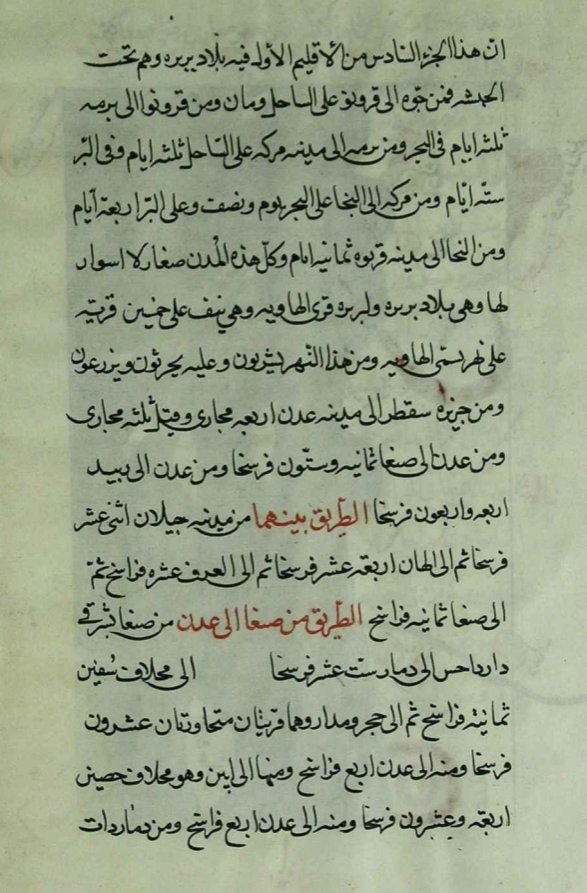 ان هذا الجزء السادس من الاقليم الاول فيه بلاد بربره وهم تحت
الحبشه فمن جوه الى قرونو على الساحل ومان ومن قرونوا الى برمه
ثلثه ايام فى البحر ومن برمه الى مدينه مركه على الساحل ثلثه ايام وفى البر
سته ايام ومن مركه الى النجا على البحر يوم ونصف وعلى البر اربعة ايام
ومن النجا الى مدينه قربوه ثمانيه ايام وكل هذه المدن صغار لا اسوار
لها وهى بلاد بربره ولبربره قرى الهاويه وهى نيف على خمسين قريه
على نهر يسمى الهاويه ومن هذا النهر يشربون وعليه يحرثون ويزرعون
ومن جزيره سقطرا الى مدينه عدن اربعه مجارى وقيل ثلثه مجارى
ومن عدن الى صنعا ثمانيه وستون فرسخا ومن عدن الى
اربعه واربعون فرسخا الطريق بينهما من مدينه جيلان اثنى عشر
فرسخا ثم الى الهان اربعة عشر فرسخا ثم الى العرف عشره فراسخ ثم
الى صنعا ثمانيه فراسخ الطريق من صنعا الى عدن من صنعا
الى دمار ست عشر فرسخا الى مخلاف
ثمانية فراسخ ثم الى حجر ومدار وهما قريتان متجاورتان عشرون
فرسخا ومنه الى عدن اربع فراسخ ومنها الى ابين وهو مخلاف حصين
اربعة وعشرون فرسخا ومنه الى عدن اربع فراسخ ومن